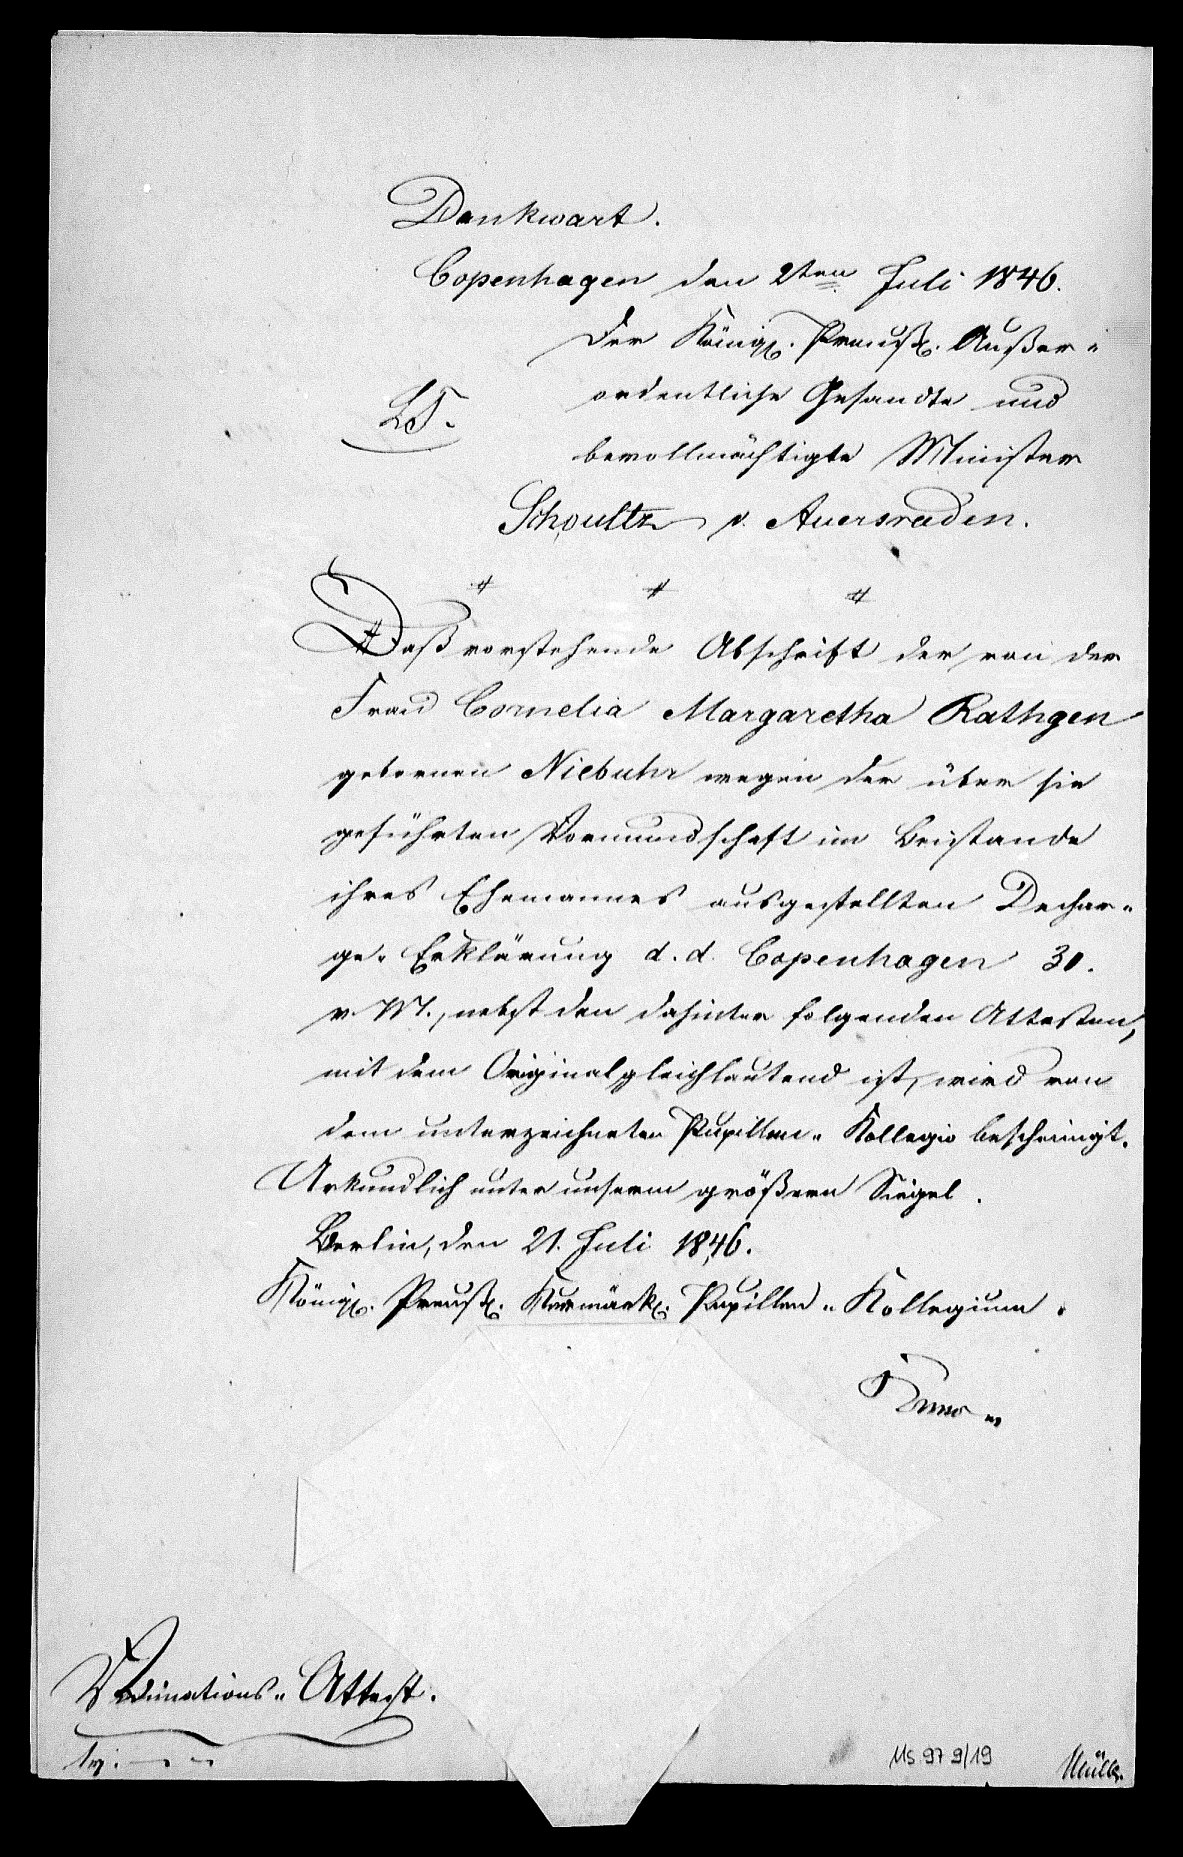 Dankwart.
Copenhagen den 2ten Juli 1846.
Der Königl. Preuß. Außer-
ordentliche Gesandte und
bevollmächtigte Minister
LS.
Schoultz v. Ascheraden.
Daß vorstehende Abschrift der von der
Frau Cornelia Margaretha Rathgen
gebornen Niebuhr wegen der über sie
geführten Vormundschaft im Beistande
ihres Ehemannes ausgestellten Dechar-
ge-Erklärung d. d. Copenhagen 30.
v. M., nebst den dahinter folgenden Attesten,
mit dem Original gleichlautend ist, wird von
dem unterzeichneten Pupillen-Kollegio bescheinigt.
Urkundlich unter unserm größern Siegel.
Berlin, den 21. Juli 1846.
Königl. Preuß. Kurmärk. Pupillen-Kollegium.
Vidimations-Attest.
Ms 97 9/19